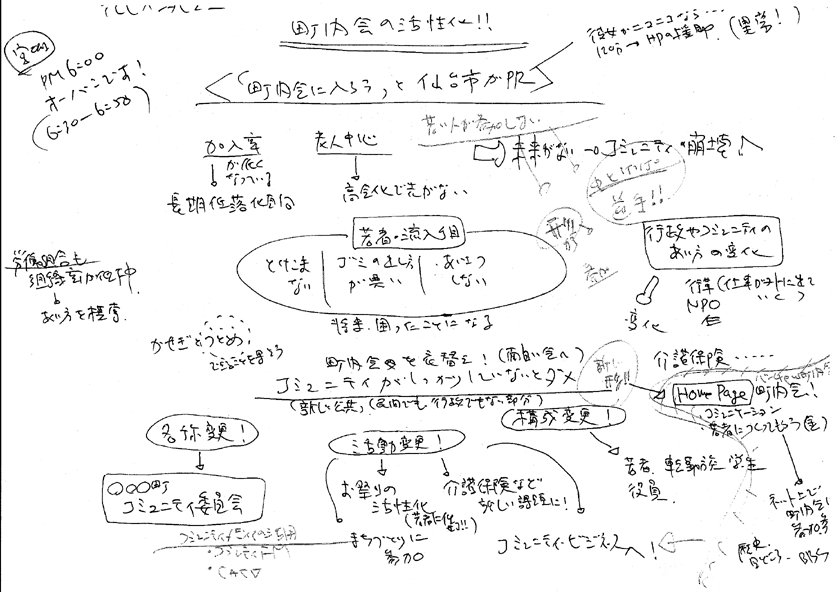 町内会の活性化!!
PM 6:00
オーバーです!
(6:30-6:50)
「町内会に入ろう」と仙台市がPR
120万→HPの援助 (異常!)
若い人が参加しない
加入率
が低く
なっている
長期低落化傾向
老人中心
高令化で先がない
未来がない→コミュニティの崩壊へ
若者の流入項目
とけこま
ない
ゴミの出し方
が異い
あいさつ
しない
将来困ったことになる
行政やコミュニティの
あり方の変化
変化
NPO
労働組合も
組織率が低下中
あり方を模索
かせぎとつとめ
町内会の衣替え! (面白い会へ)
コミュニティがしっかりしていないとダメ
(新しい公共) (民間でも行政でもない部分)
新しい
形!!
介護保険……
Home Page
町内会!
コミュニケーション
若者につくってもらう(金)
名称変更!
〇〇〇町
コミュニティ委員会
活動変更!
お祭りの
活性化
まちづくりに
参加
介護保険など
新しい課題に!
構成変更!
若者、転勤族、学生
役員
コミュニティ・ビジネスへ!
ネット上で
町内会に
参加
歴史
見どころ
BBS